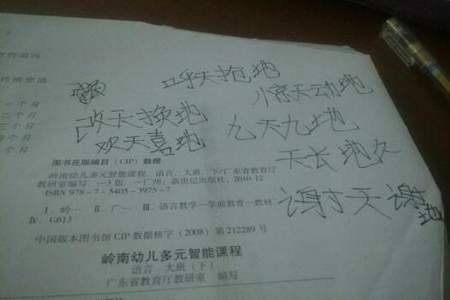 呼天抢地
惊天动地
改天换地
九天九地
欢天喜地
天长地久
谢天谢地
图书在版编目(CIP)数据
岭南幼儿多元智能课程. 语言. 大班. 下/广东省教育厅
教研室编写. —3版. —广州：新世纪出版社，2010.12
ISBN 978-7-5405-3975-7
Ⅰ. 岭… Ⅱ. 广… Ⅲ. 语言教学—学前教育—教材
Ⅳ G613
中国版本图书馆CIP数据核字(2008)第212289号
岭南幼儿多元智能课程
语言 大班(下)
广东省教育厅教研室 编写